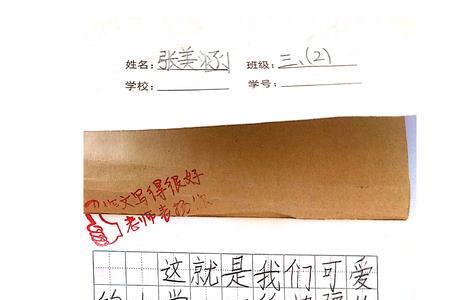 姓名：张美涵 班级：三、(2)
学校： 学号：
小作文写得很好
老师表扬你
这就是我们可爱
的小学